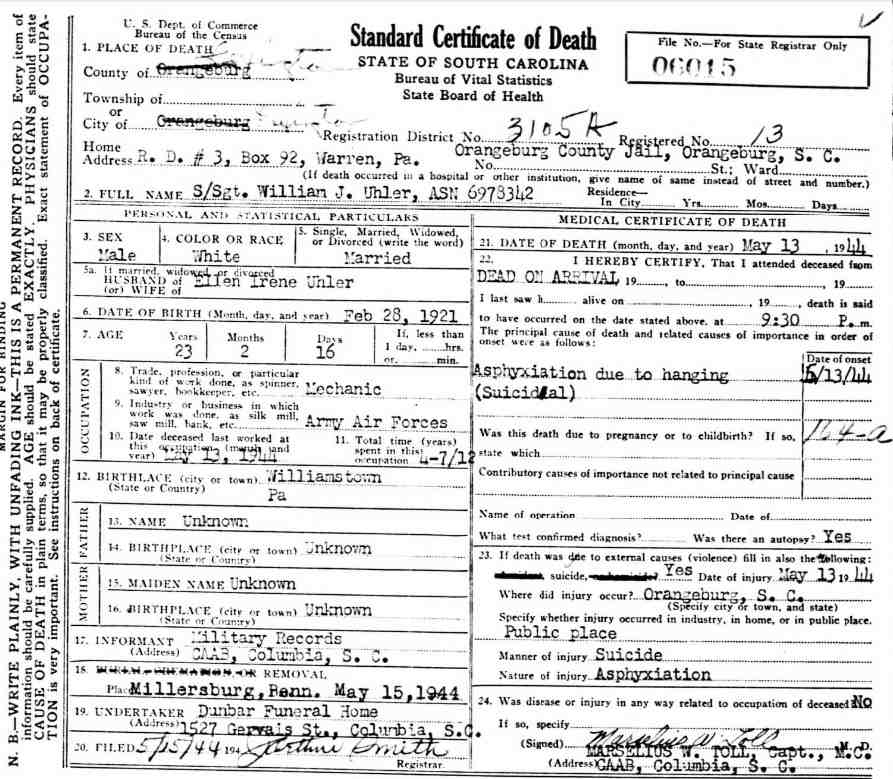 U. S. Dept. of Commerce
Bureau of the Census
Standard Certificate of Death
STATE OF SOUTH CAROLINA
Bureau of Vital Statistics
State Board of Health
File No.—For State Registrar Only
06015
1. PLACE OF DEATH
County of Orangeburg
Township of
or
City of Orangeburg
Registration District No. 3105A Registered No. 13
Home Address R. D. # 3, Box 92, Warren, Pa. Orangeburg County Jail, Orangeburg, S. C.
No. St.; Ward
(If death occurred in a hospital or other institution, give name of same instead of street and number.)
2. FULL NAME S/Sgt. William J. Uhler, ASN 6978342 Residence— In City Yrs. Mos. Days
PERSONAL AND STATISTICAL PARTICULARS
3. SEX Male
4. COLOR OR RACE White
5. Single, Married, Widowed, or Divorced (write the word) Married
5a. If married, widowed or divorced
HUSBAND of Ellen Irene Uhler
(or) WIFE of
6. DATE OF BIRTH (Month, day, and year) Feb 28, 1921
7. AGE Years 23 Months 2 Days 16 If, less than 1 day, hrs. or min.
OCCUPATION
8. Trade, profession, or particular kind of work done, as spinner, sawyer, bookkeeper, etc. Mechanic
9. Industry or business in which work was done, as silk mill, saw mill, bank, etc. Army Air Forces
10. Date deceased last worked at this occupation (month and year) May 13, 1944
11. Total time (years) spent in this occupation 4-7/12
12. BIRTHPLACE (city or town) Williamstown
(State or Country) Pa
FATHER
13. NAME Unknown
14. BIRTHPLACE (city or town) Unknown
(State or Country)
MOTHER
15. MAIDEN NAME Unknown
16. BIRTHPLACE (city or town) Unknown
(State or Country)
17. INFORMANT Military Records
(Address) CAAB, Columbia, S. C.
18. BURIAL, CREMATION, OR REMOVAL
Place Millersburg, Penn. May 15, 1944
19. UNDERTAKER Dunbar Funeral Home
(Address) 1527 Gervais St., Columbia, S.C.
20. FILED 5/15/44 194 Smith
Registrar.
MEDICAL CERTIFICATE OF DEATH
21. DATE OF DEATH (month, day, and year) May 13, 1944
22. I HEREBY CERTIFY, That I attended deceased from
DEAD ON ARRIVAL 19, to , 19
I last saw h alive on , 19 , death is said
to have occurred on the date stated above, at 9:30 P. m.
The principal cause of death and related causes of importance in order of onset were as follows:
Date of onset
Asphyxiation due to hanging 5/13/44
(Suicidal)
164-a
Was this death due to pregnancy or to childbirth? If so,
state which
Contributory causes of importance not related to principal cause
Name of operation Date of
What test confirmed diagnosis? Was there an autopsy? Yes
23. If death was due to external causes (violence) fill in also the following:
Accident, suicide, or homicide? Yes Date of injury May 13 1944
Where did injury occur? Orangeburg, S. C.
(Specify city or town, and state)
Specify whether injury occurred in industry, in home, or in public place.
Public place
Manner of injury Suicide
Nature of injury Asphyxiation
24. Was disease or injury in any way related to occupation of deceased NO
If so, specify
(Signed) Marselius W. Toll M. D.
MARSELIUS W. TOLL, Capt., M.C.
(Address) CAAB, Columbia, S. C.
MARGIN FOR BINDING
N. B.—WRITE PLAINLY, WITH UNFADING INK—THIS IS A PERMANENT RECORD. Every item of
information should be carefully supplied. AGE should be stated EXACTLY. PHYSICIANS should state
CAUSE OF DEATH in plain terms, so that it may be properly classified. Exact statement of OCCUPA-
TION is very important. See instructions on back of certificate.